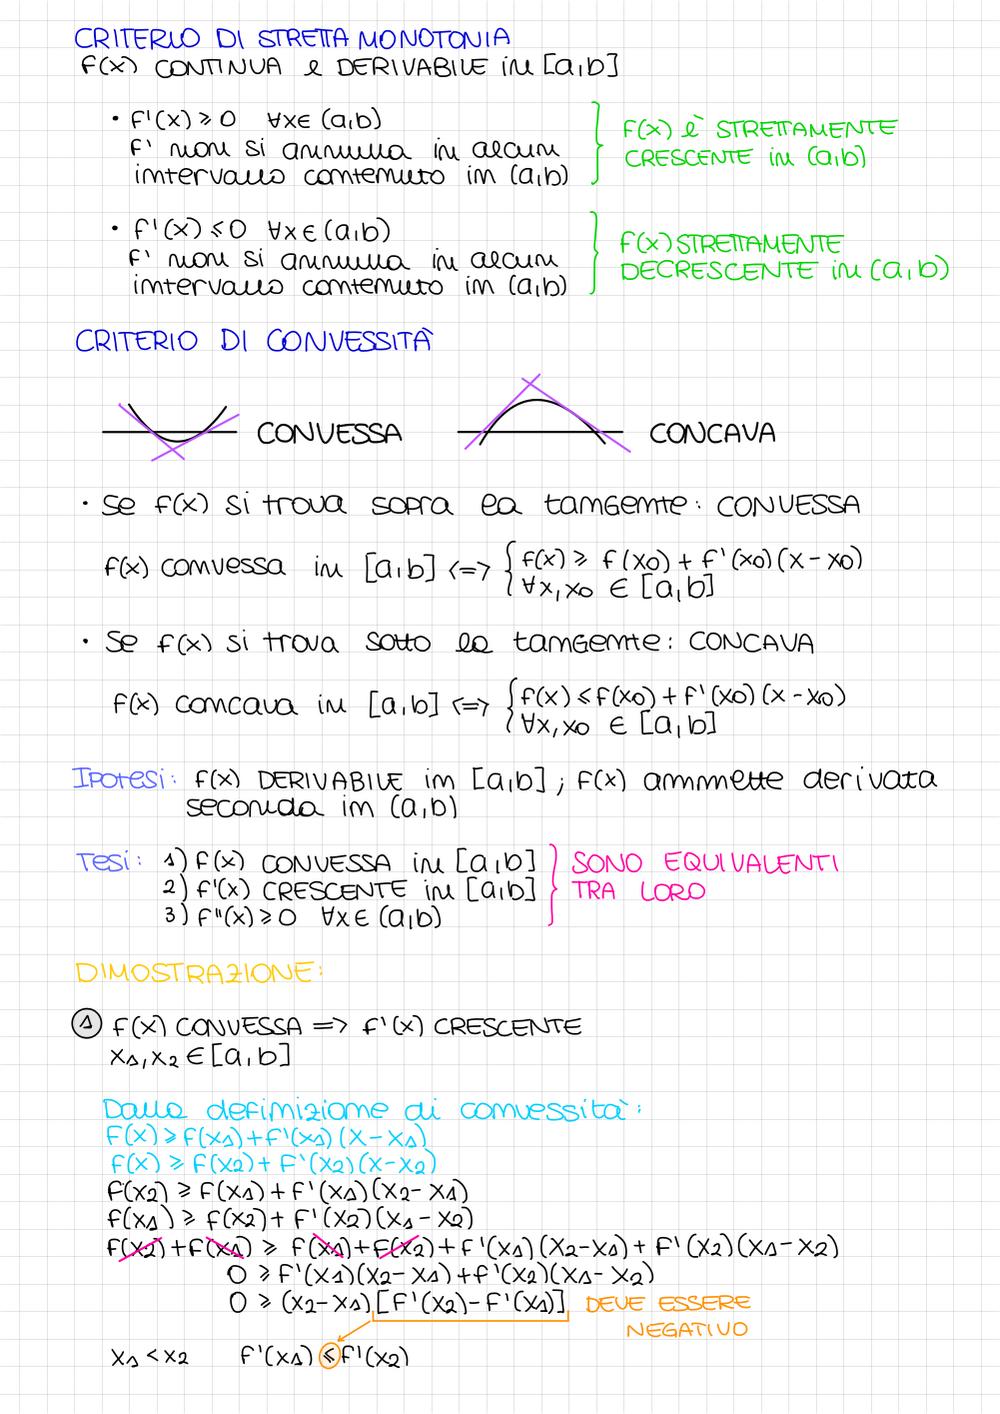 CRITERIO DI STRETTA MONOTONIA
f(x) CONTINUA e DERIVABILE in [a,b]
• f'(x) ⩾ 0 ∀x∈(a,b)
f' non si annulla in alcun
intervallo contenuto in (a,b)
f(x) è STRETTAMENTE
CRESCENTE in (a,b)
• f'(x) ⩽ 0 ∀x∈(a,b)
f' non si annulla in alcun
intervallo contenuto in (a,b)
f(x) STRETTAMENTE
DECRESCENTE in (a,b)
CRITERIO DI CONVESSITÀ
CONVESSA
CONCAVA
• Se f(x) si trova sopra la tangente: CONVESSA
f(x) convessa in [a,b] <=> { f(x) ⩾ f(x0) + f'(x0)(x - x0)
∀x,x0 ∈ [a,b]
• Se f(x) si trova sotto la tangente: CONCAVA
f(x) concava in [a,b] <=> { f(x) ⩽ f(x0) + f'(x0)(x - x0)
∀x,x0 ∈ [a,b]
Ipotesi: f(x) DERIVABILE in [a,b] ; f(x) ammette derivata
seconda in (a,b)
Tesi: 1) f(x) CONVESSA in [a,b]
2) f'(x) CRESCENTE in [a,b]
3) f''(x) ⩾ 0 ∀x∈(a,b)
SONO EQUIVALENTI
TRA LORO
DIMOSTRAZIONE:
1 f(x) CONVESSA => f'(x) CRESCENTE
x1,x2 ∈ [a,b]
Dalla definizione di convessità:
f(x) ⩾ f(x1) + f'(x1)(x-x1)
f(x) ⩾ f(x2) + f'(x2)(x-x2)
f(x2) ⩾ f(x1) + f'(x1)(x2-x1)
f(x1) ⩾ f(x2) + f'(x2)(x1-x2)
f(x2) + f(x1) ⩾ f(x1) + f(x2) + f'(x1)(x2-x1) + f'(x2)(x1-x2)
0 ⩾ f'(x1)(x2-x1) + f'(x2)(x1-x2)
0 ⩾ (x2-x1)[f'(x2)-f'(x1)] DEVE ESSERE
NEGATIVO
x1 < x2 f'(x1) ⩽ f'(x2)